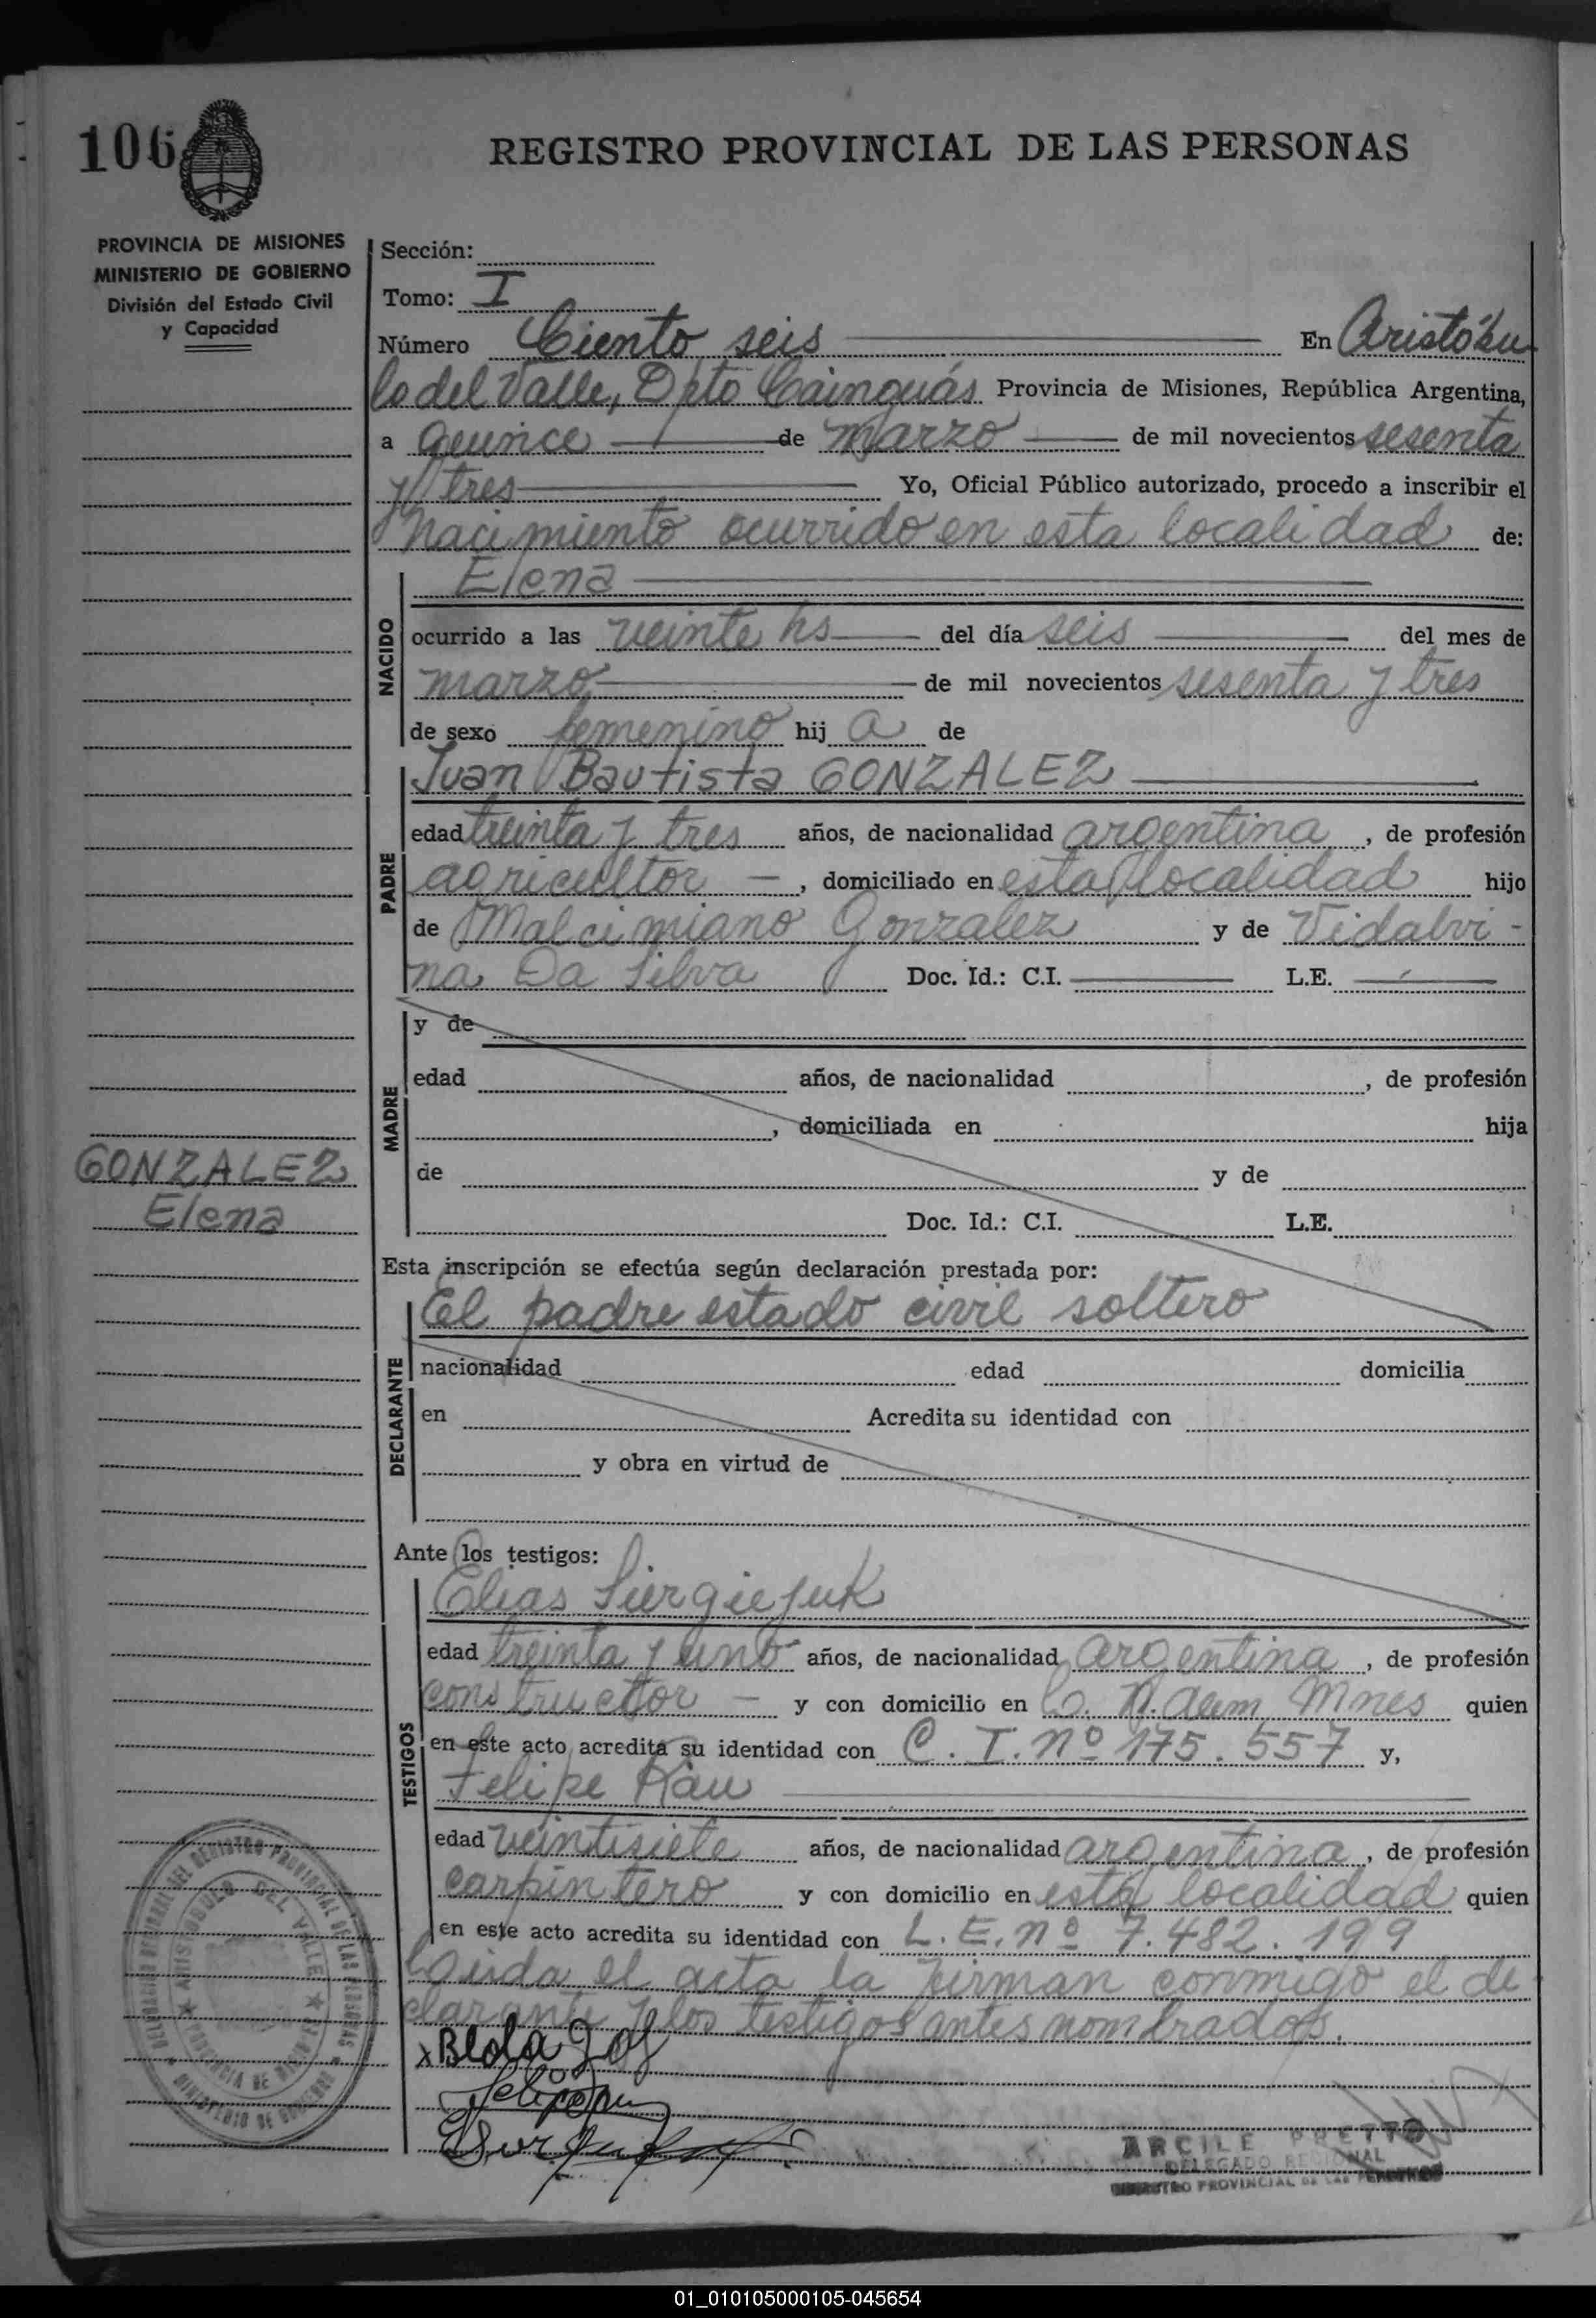 106
REGISTRO PROVINCIAL DE LAS PERSONAS
PROVINCIA DE MISIONES
MINISTERIO DE GOBIERNO
División del Estado Civil
y Capacidad
Sección:
Tomo: I
Número Ciento seis En Aristóbu
lo del Valle, Dpto Cainguás Provincia de Misiones, República Argentina,
a quince de marzo de mil novecientos sesenta
y tres Yo, Oficial Público autorizado, procedo a inscribir el
nacimiento ocurrido en esta localidad de:
NACIDO
Elena
ocurrido a las veinte hs del día seis del mes de
marzo de mil novecientos sesenta y tres
de sexo femenino hij a de
PADRE
Juan Bautista GONZALEZ
edad treinta y tres años, de nacionalidad argentina, de profesión
agricultor - , domiciliado en esta localidad hijo
de Malcimiano Gonzalez y de Vidalvi-
na Da Silva Doc. Id.: C.I. L.E.
MADRE
y de
edad años, de nacionalidad , de profesión
, domiciliada en hija
de y de
Doc. Id.: C.I. L.E.
GONZALEZ
Elena
Esta inscripción se efectúa según declaración prestada por:
DECLARANTE
El padre estado civil soltero
nacionalidad edad domicilia
en Acredita su identidad con
y obra en virtud de
Ante los testigos:
TESTIGOS
Elias Siergiejuk
edad treinta y uno años, de nacionalidad argentina, de profesión
constructor - y con domicilio en L. N. Alem Mnes quien
en este acto acredita su identidad con C. I. nº 175.557 y,
Felipe Rau
edad veintisiete años, de nacionalidad argentina, de profesión
carpintero y con domicilio en esta localidad quien
en este acto acredita su identidad con L. E. nº 7.482.199
Leida el acta la firman conmigo el de
clarante y los testigos antes nombrados.
ARCILE PRETTO
DELEGADO REGIONAL
REGISTRO PROVINCIAL DE LAS PERSONAS
01_010105000105-045654